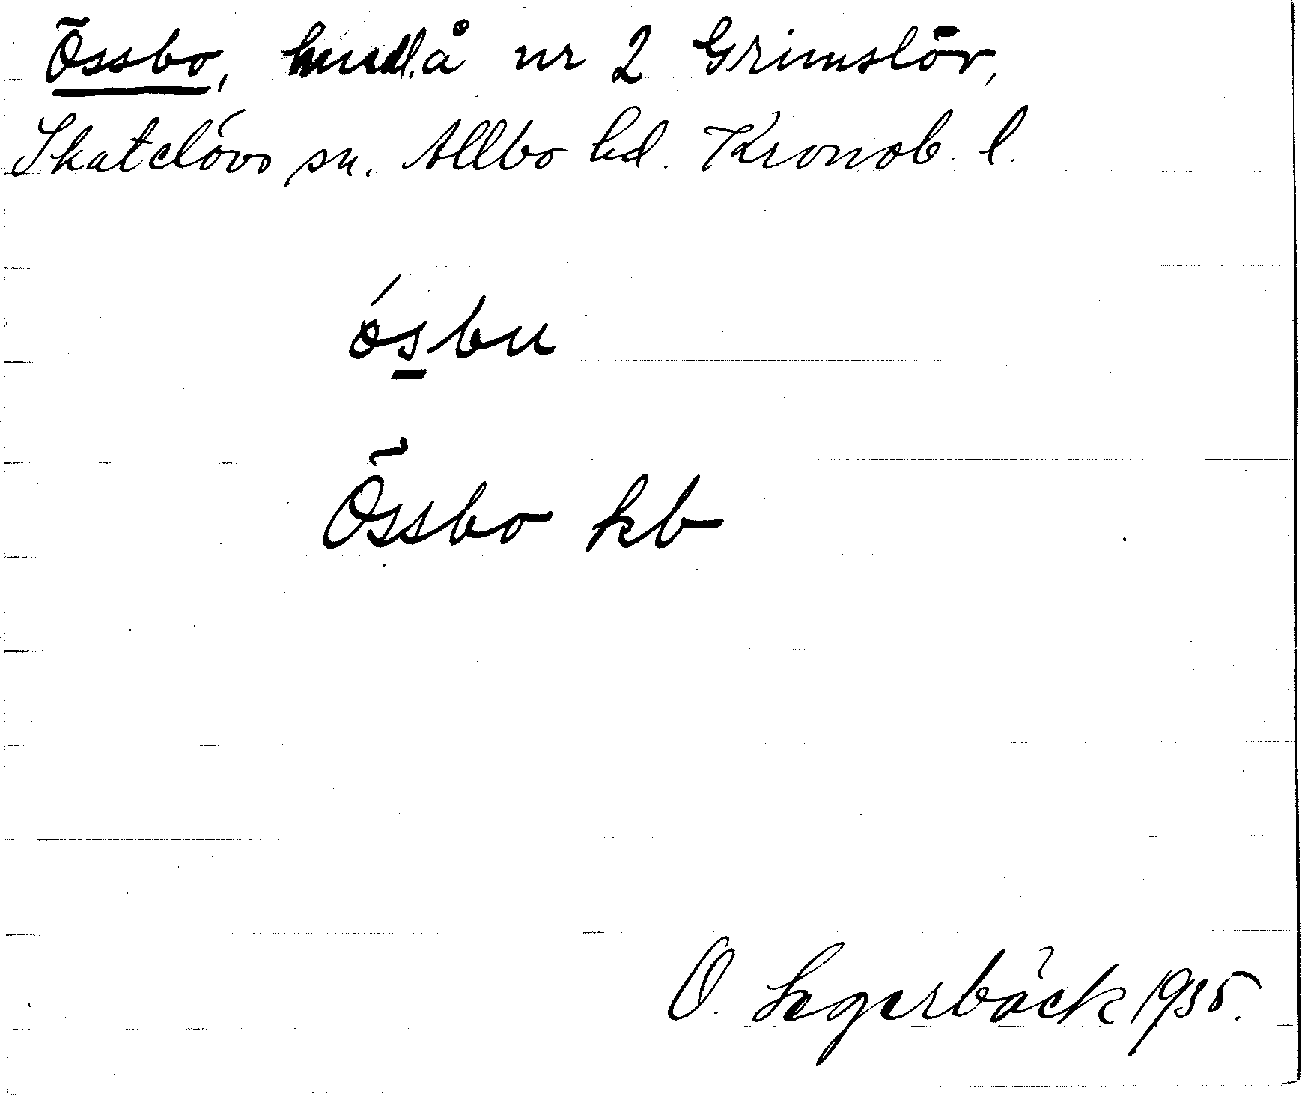 Össbo, å nr 2 Grimslöv,
Skatelövs sn. Allbo hd. Kronob. l.
ósbu
Össbo kb
O. Lagerbäck 1935.